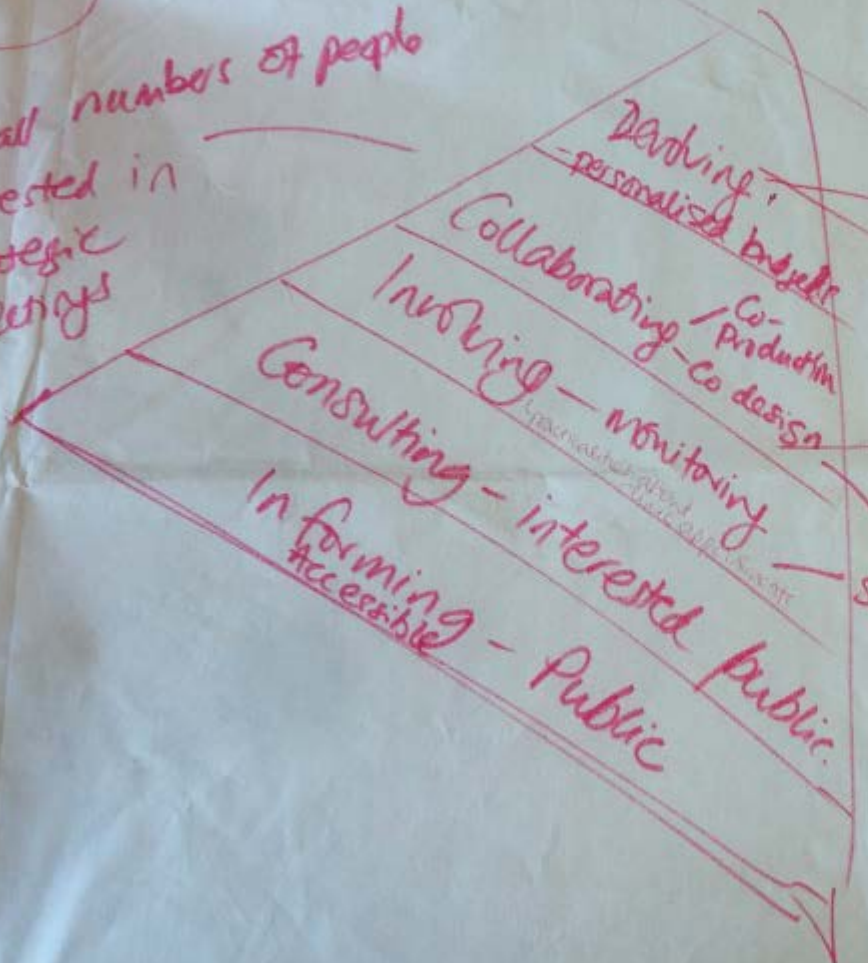 all numbers of people
ested in
tegic
etings
Devolving:
- personalised budgets
Collaborating - co design
/ Co-
production
Involving - monitoring
Consulting - interested public.
Informing - Public
Accessible